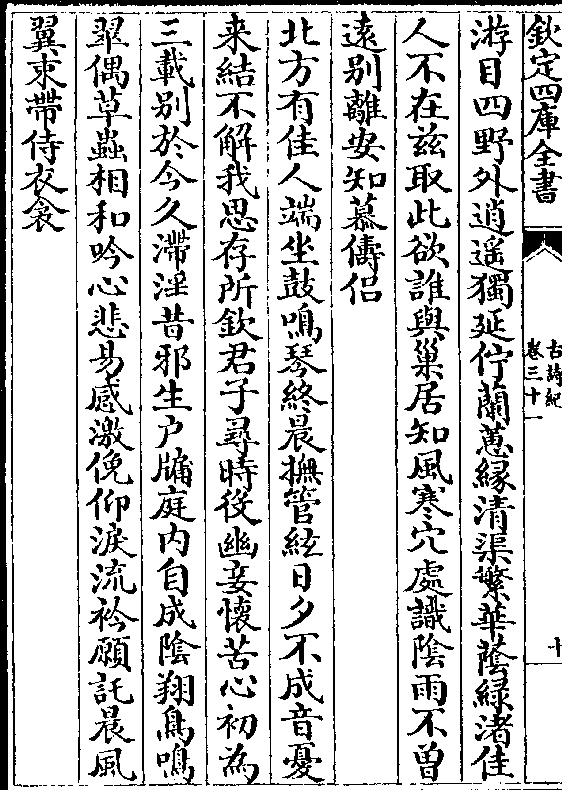 欽定四庫全書
古詩紀
卷三十一
十
游目四野外逍遥獨延佇蘭蕙縁清渠繁華蔭緑渚佳
人不在兹取此欲誰與巢居知風寒穴處識隂雨不曽
逺别離安知慕儔侣
北方有佳人端坐鼓鳴琴終晨撫管絃日夕不成音憂
来結不解我思存所欽君子尋時役幽妾懷苦心初為
三載别於今久滯淫昔邪生户牖庭内自成隂翔鳥鳴
翠偶草蟲相和吟心悲易感激俛仰淚流衿願託晨風
翼束帶侍衣衾